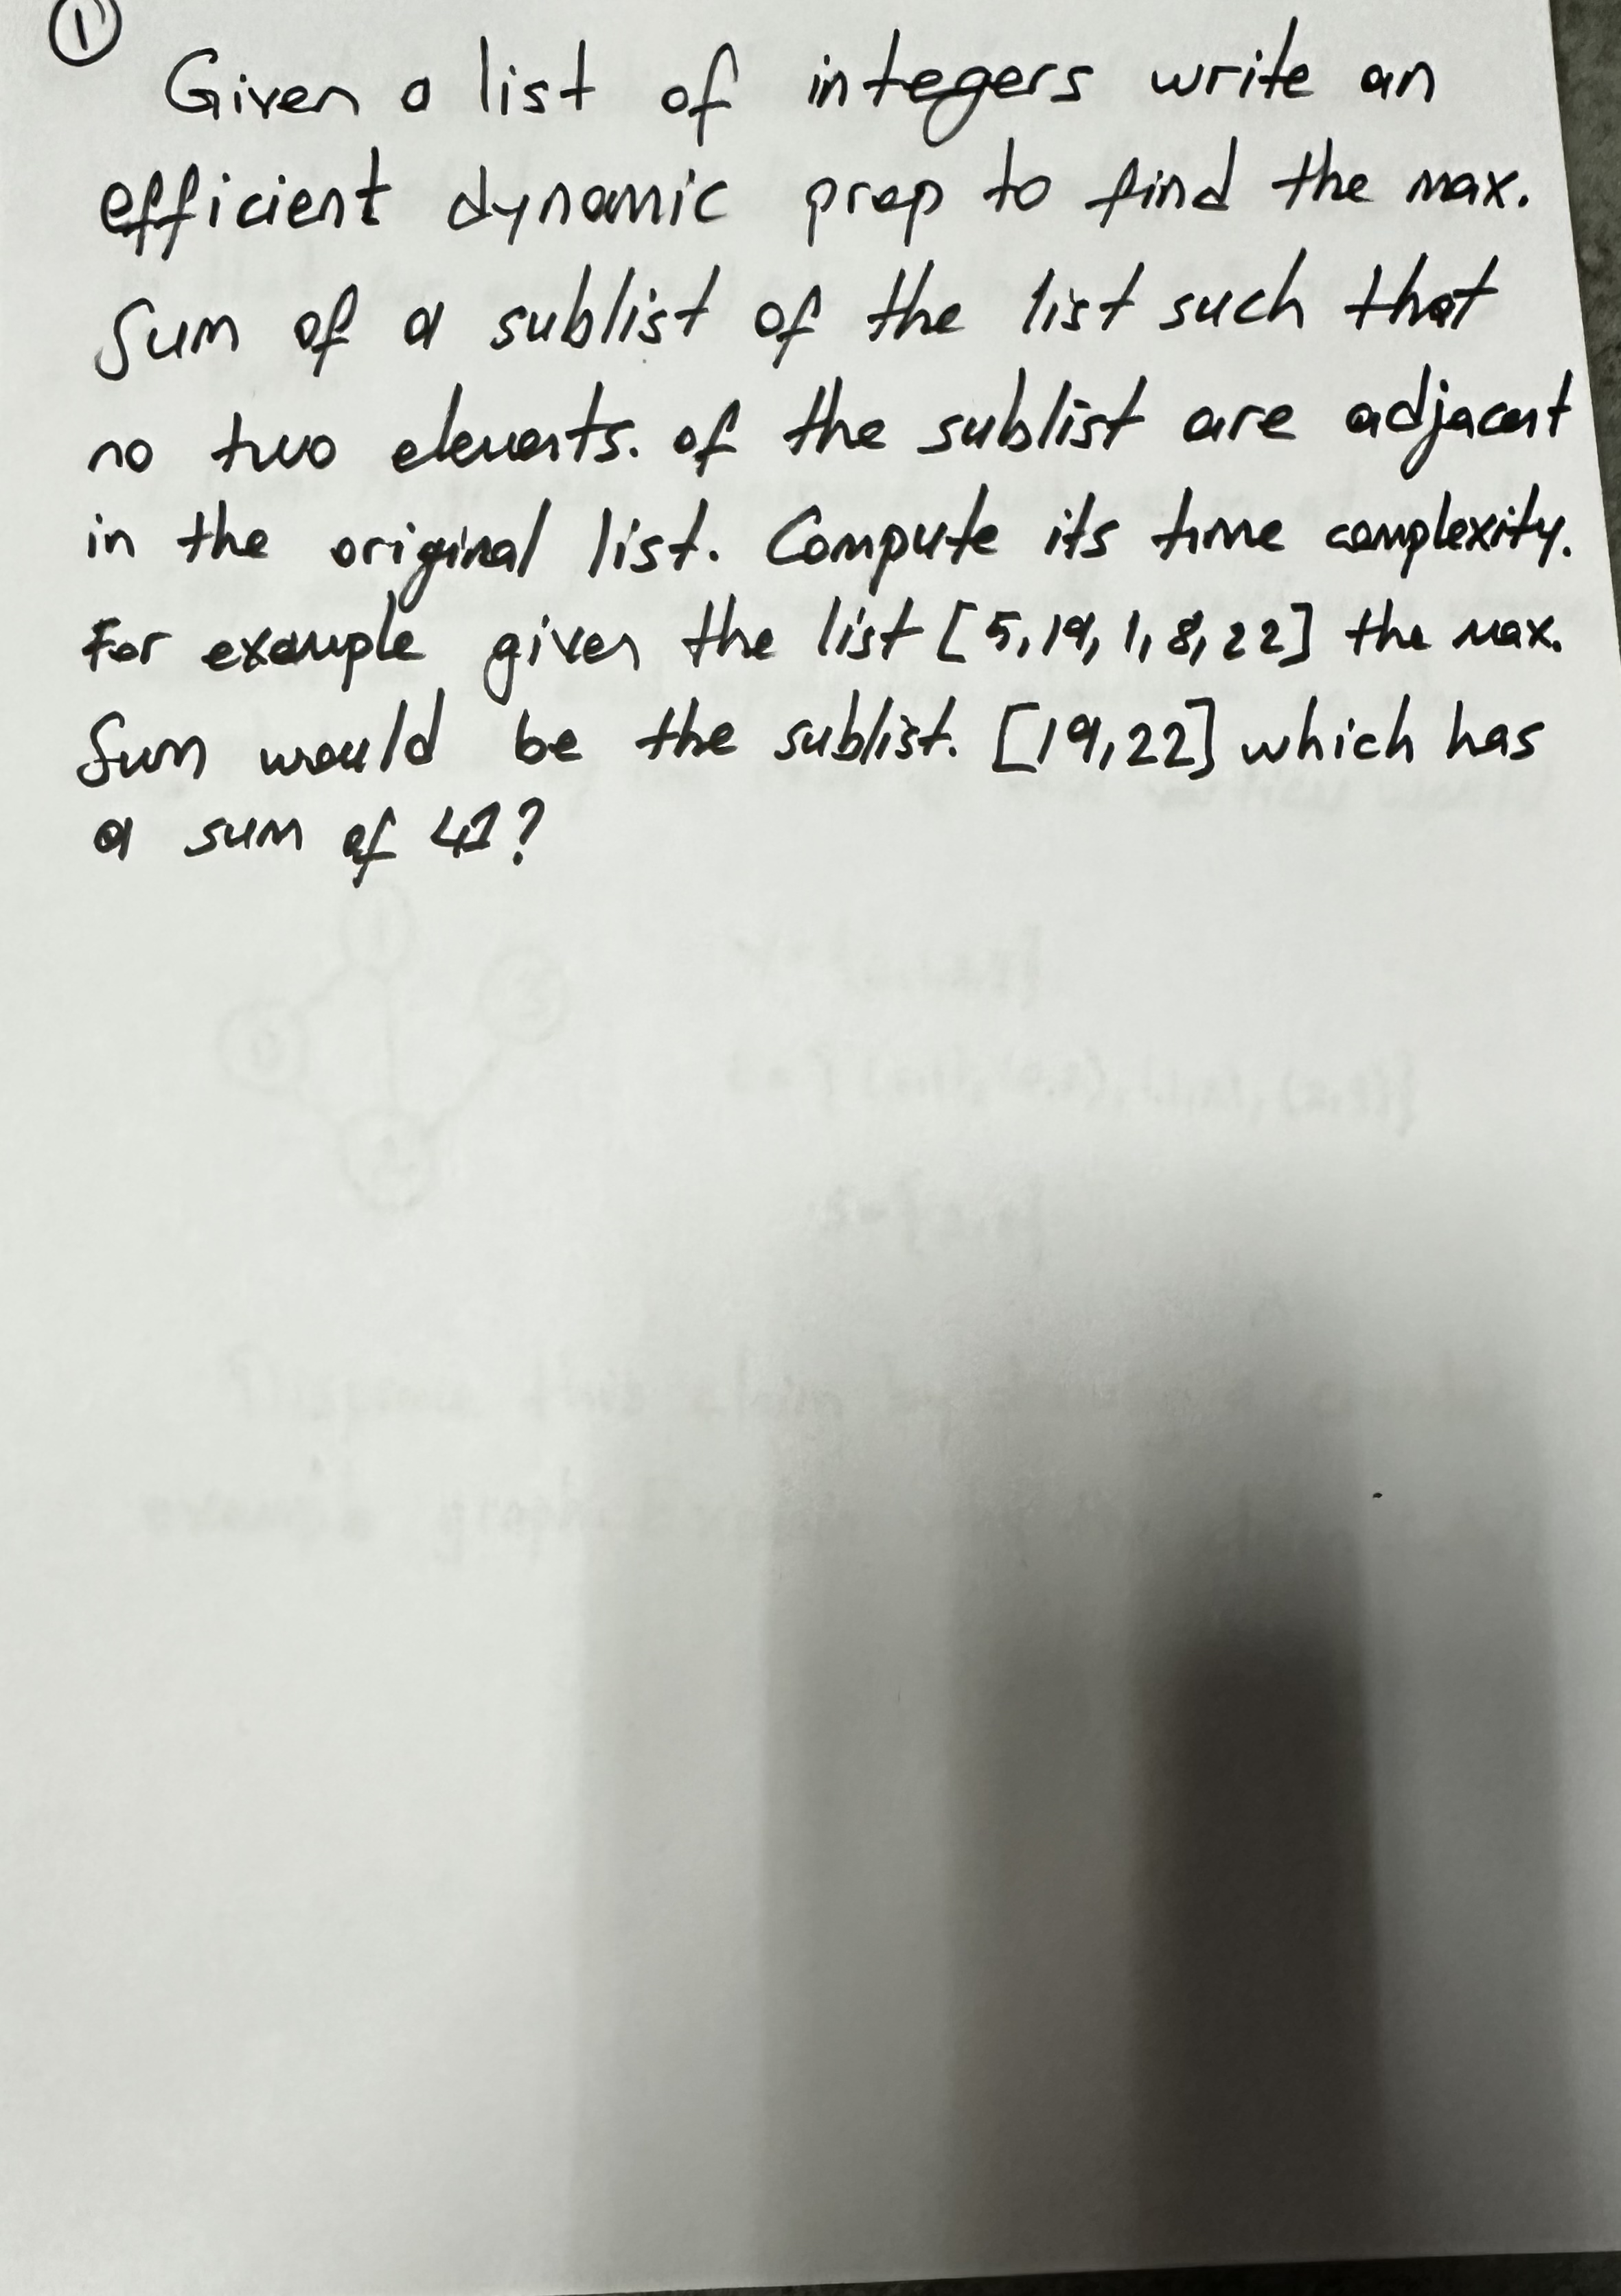 ①
Given a list of integers write an
efficient dynamic prop to find the max.
Sum of a sublist of the list such that
no two elements. of the sublist are adjacent
in the original list. Compute its time complexity.
For example given the list [5,19,1,8,22] the max.
Sum would be the sublist. [19,22] which has
a sum of 41?